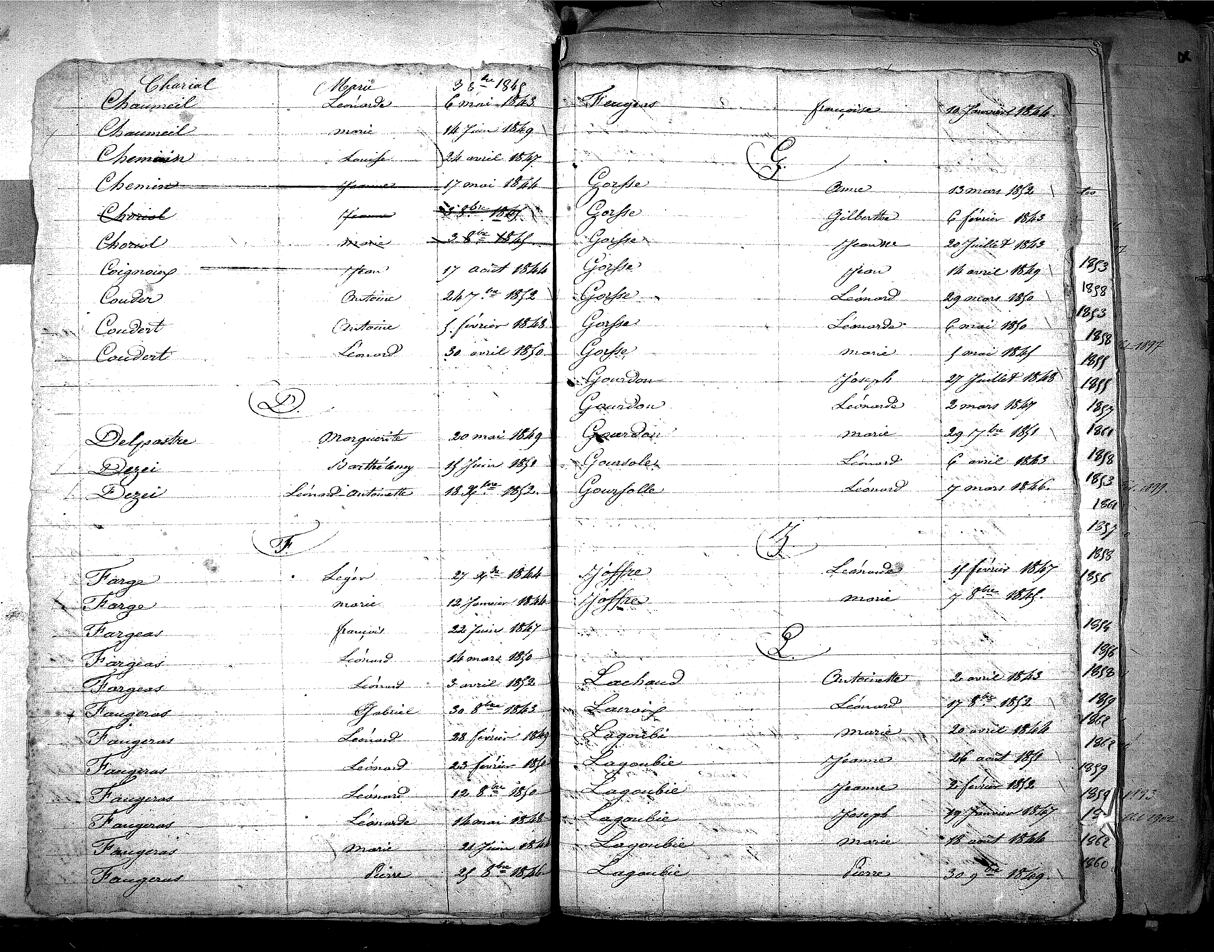 Charial Marie 3 8bre 1845
Chaumeil Léonarde 6 mai 1843
Chaumeil marie 14 Juin 1849
Chemin Louise 24 avril 1847
Chemin Jeanne 17 mai 1844
Chariol Jeanne 3 8bre 1845
Chariol marie 3 8bre 1845
Coignoux Jean 17 août 1844
Couder Antoine 24 7bre 1852
Coudert Antoine 5 février 1848
Coudert Léonard 30 avril 1850
D
Delpastre Marguerite 20 mai 1849
Dezei Barthélemy 15 Juin 1851
Dezei Léonard-Antoinette 18 1852
F
Farge Léger 27 1844
Farge marie 12 Janvier 1844
Fargeas françois 22 Juin 1847
Fargeas Léonard 14 mars 1850
Fargeas Léonard 3 avril 1852
Faugeras Gabriel 30 8bre 1843
Faugeras Léonard 28 février 1849
Faugeras Léonard 23 février 1850
Faugeras Léonard 12 8bre 1850
Faugeras Léonarde 14 mai 1848
Faugeras marie 21 Juin
Faugeras Pierre 25 8bre 1846
Feugeas françoise 10 Janvier 1844
G
Gorsse Anne 13 mars 1852
Gorsse Gilberthe 6 février 1843
Gorsse Jeanne 20 Juillet 1843
Gorsse Jean 14 avril 1849
Gorsse Léonard 29 mars 1850
Gorsse Léonarde 6 mai 1850
Gorsse marie 5 mai 1845
Gourdon Joseph 27 Juillet 1848
Gourdon Léonarde 2 mars 1847
Gourdon marie 29 7bre 1851
Goursoles Léonard 6 avril 1843
Goursolle Léonard 7 mars 1846
J
Joffre Léonarde 15 février 1847
Joffre marie 7 8bre 1845
L
Lachaud Antoinette 2 avril 1843
Lacroix Léonard 17 8bre 1852
Lagoubie marie 20 avril 1844
Lagoubie Jeanne 26 août 1851
Lagoubie Jeanne 2 février 1852
Lagoubie Joseph 19 Janvier 1847
Lagoubie marie 18 août 1844
Lagoubie Pierre 30 9bre 1849
1853
1858
1853
1858
1855
1855
1857
1861
1858
1853
1861
1857
1858
1856
1854
1858
1858
1859
1862
1859
1859
1862
1860